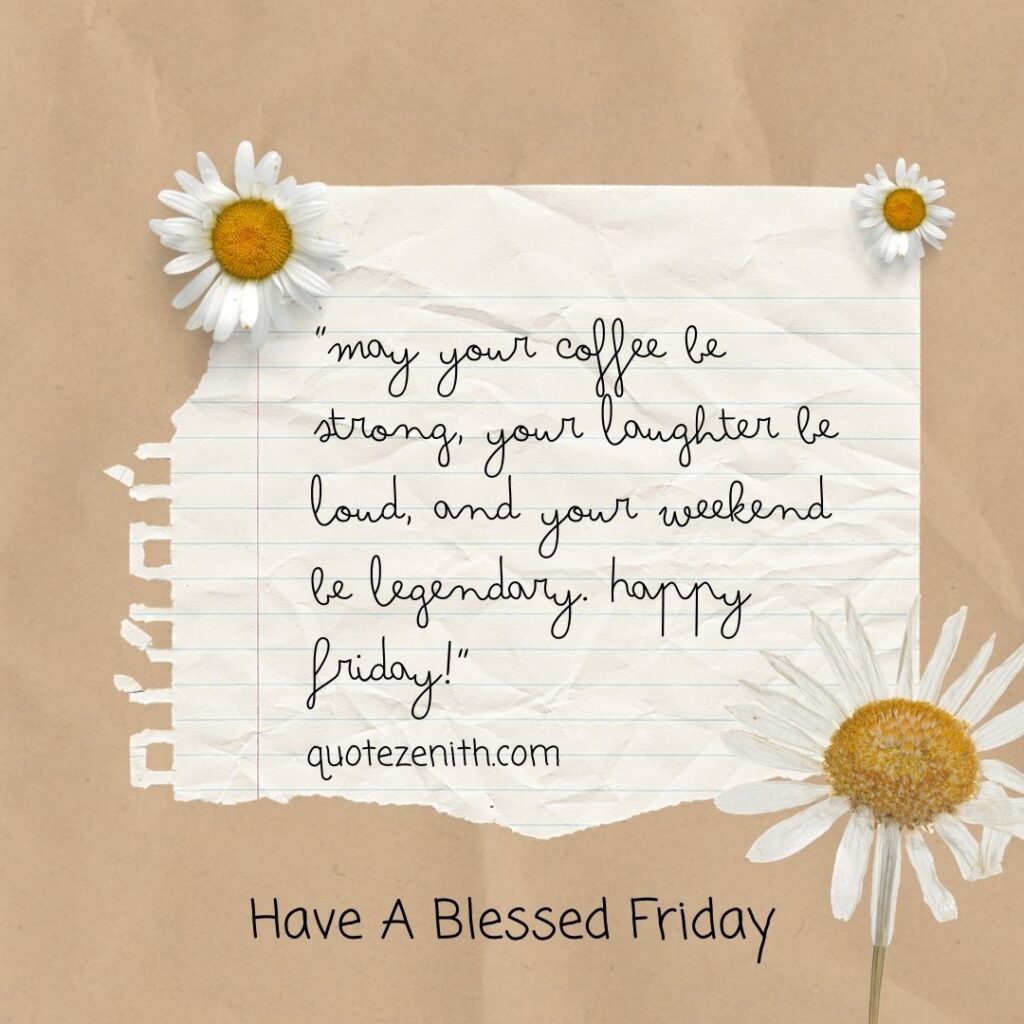 "may your coffee be
strong, your laughter be
loud, and your weekend
be legendary. happy
friday!"
quotezenith.com
Have A Blessed Friday